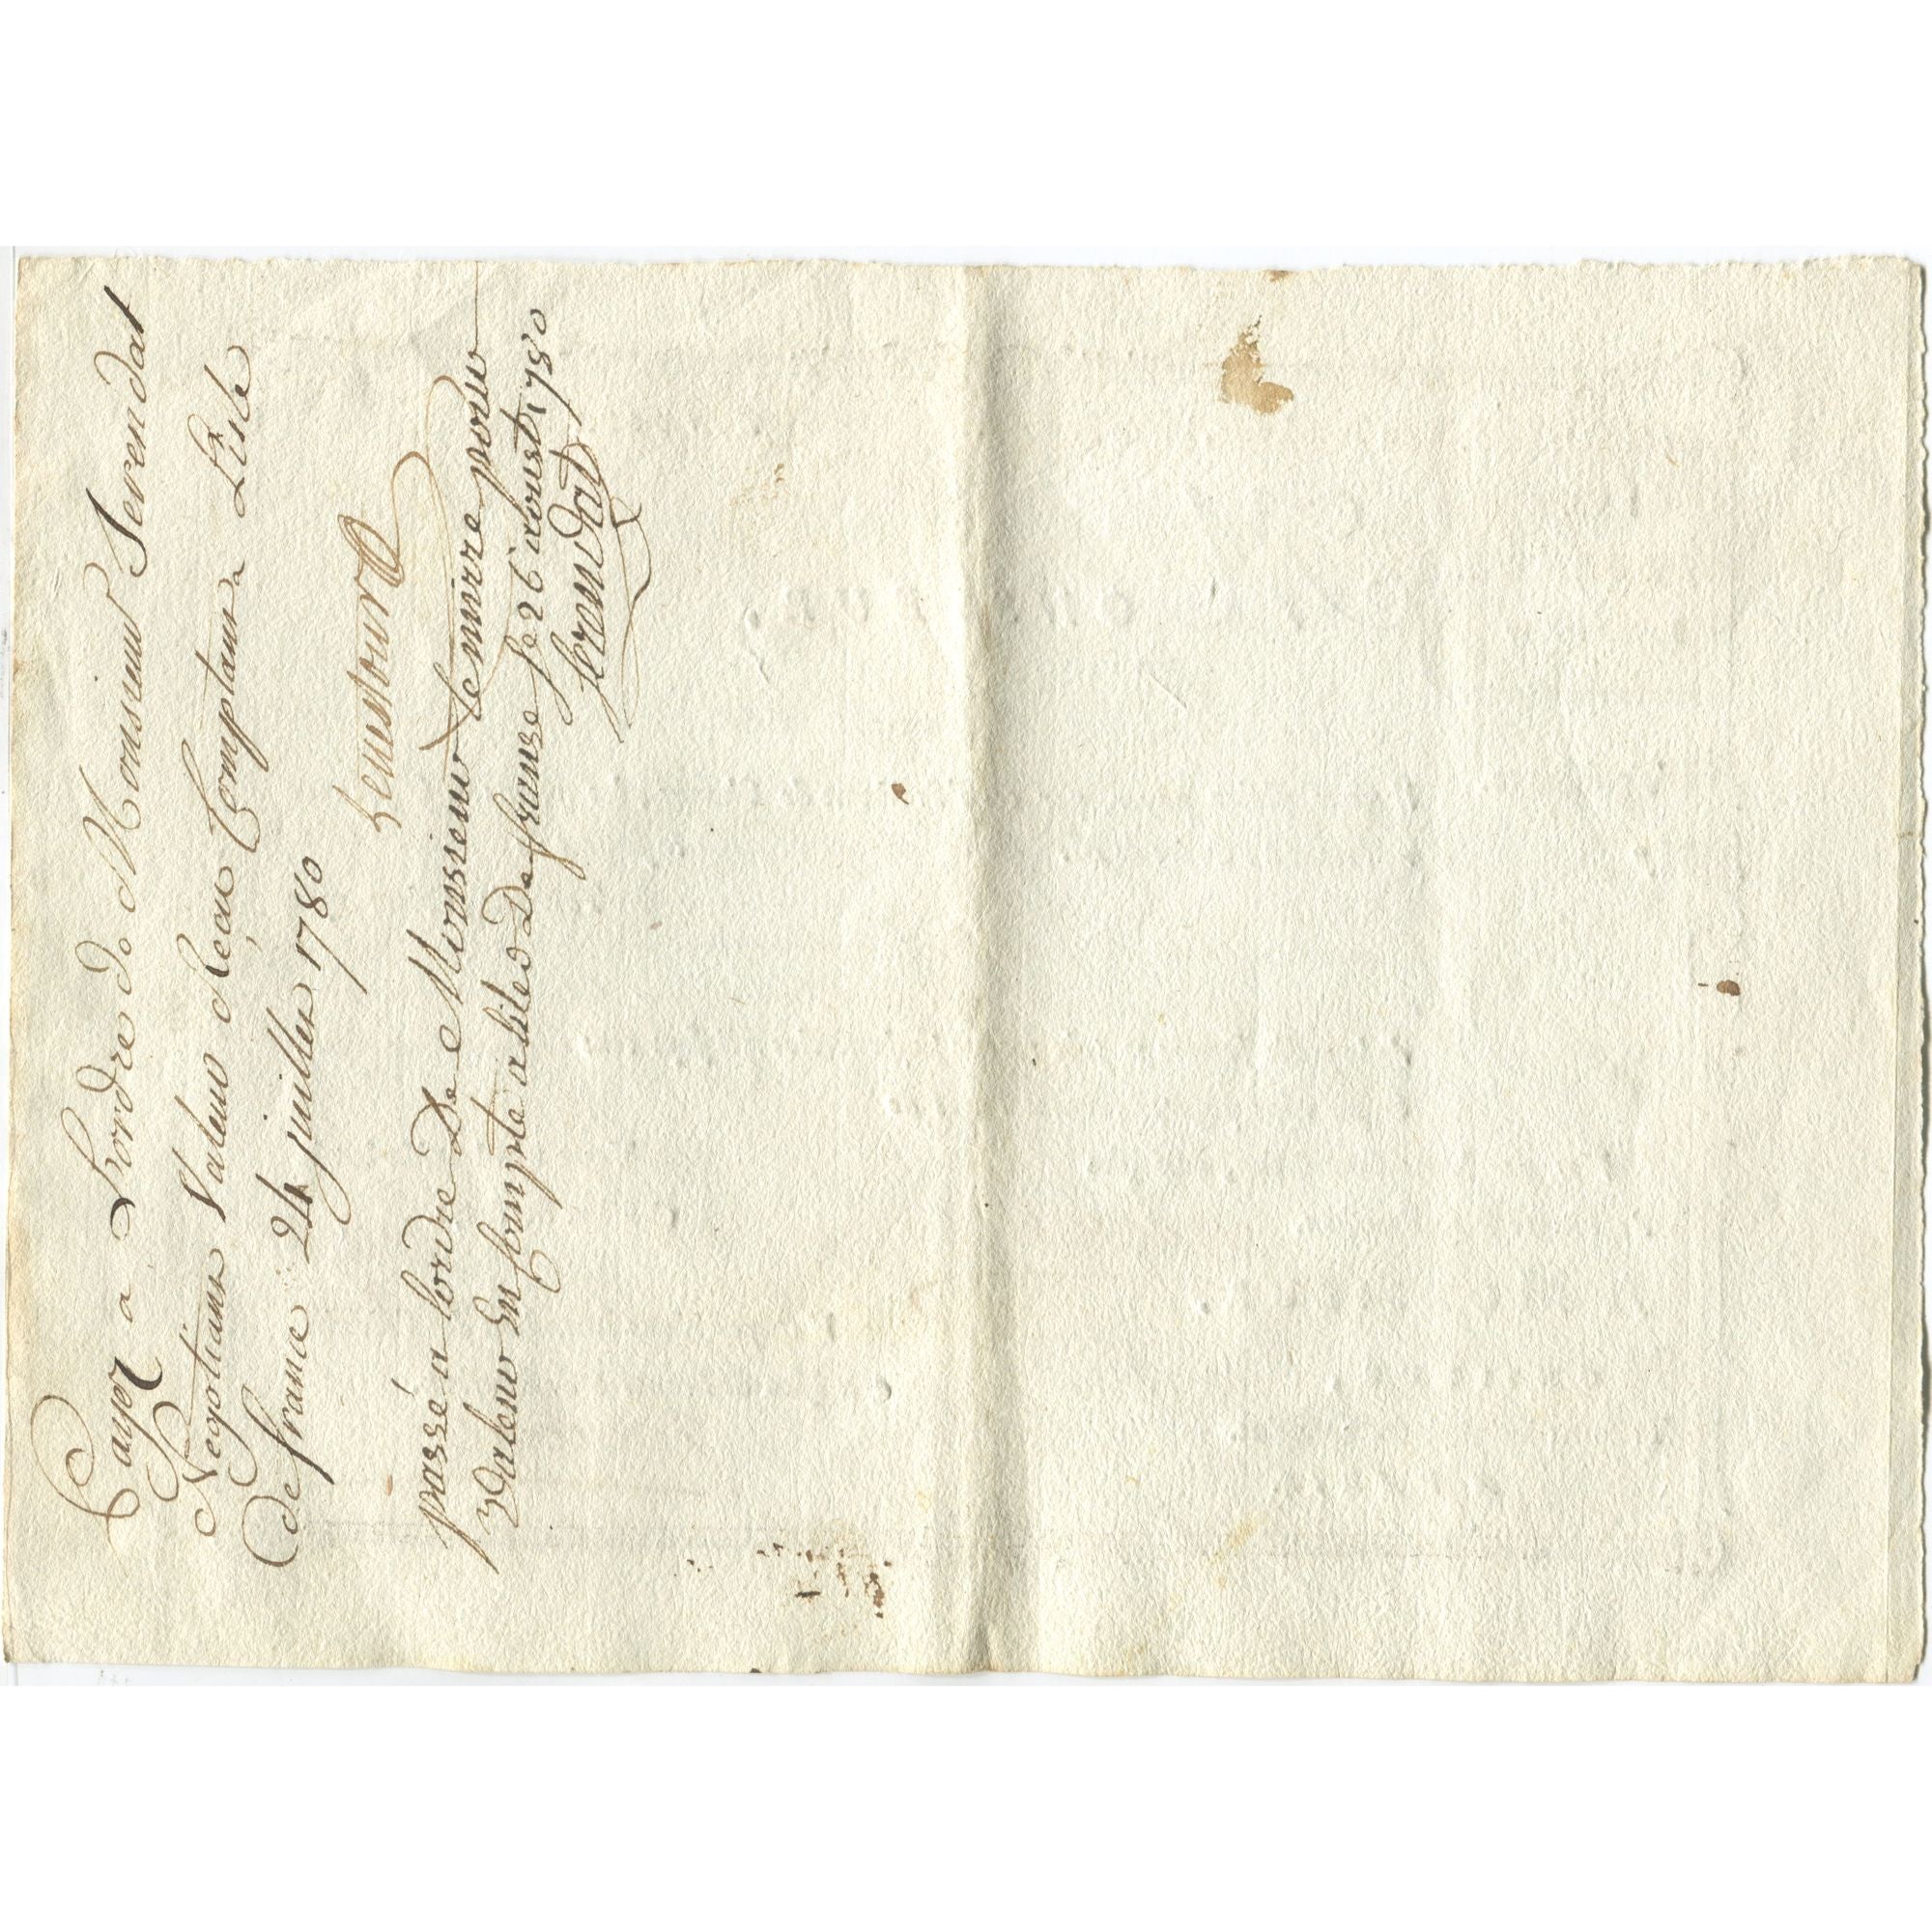 Payez a Lordre de Monsieur Serendat
Negotiant Valeur Reçeu Comptant a Lisle
de france 24 juillet 1780
passé a lordre De Monsieur Lemirre pour
Valeur En Compte a lile De franse le 26 aoust 1780
serendat